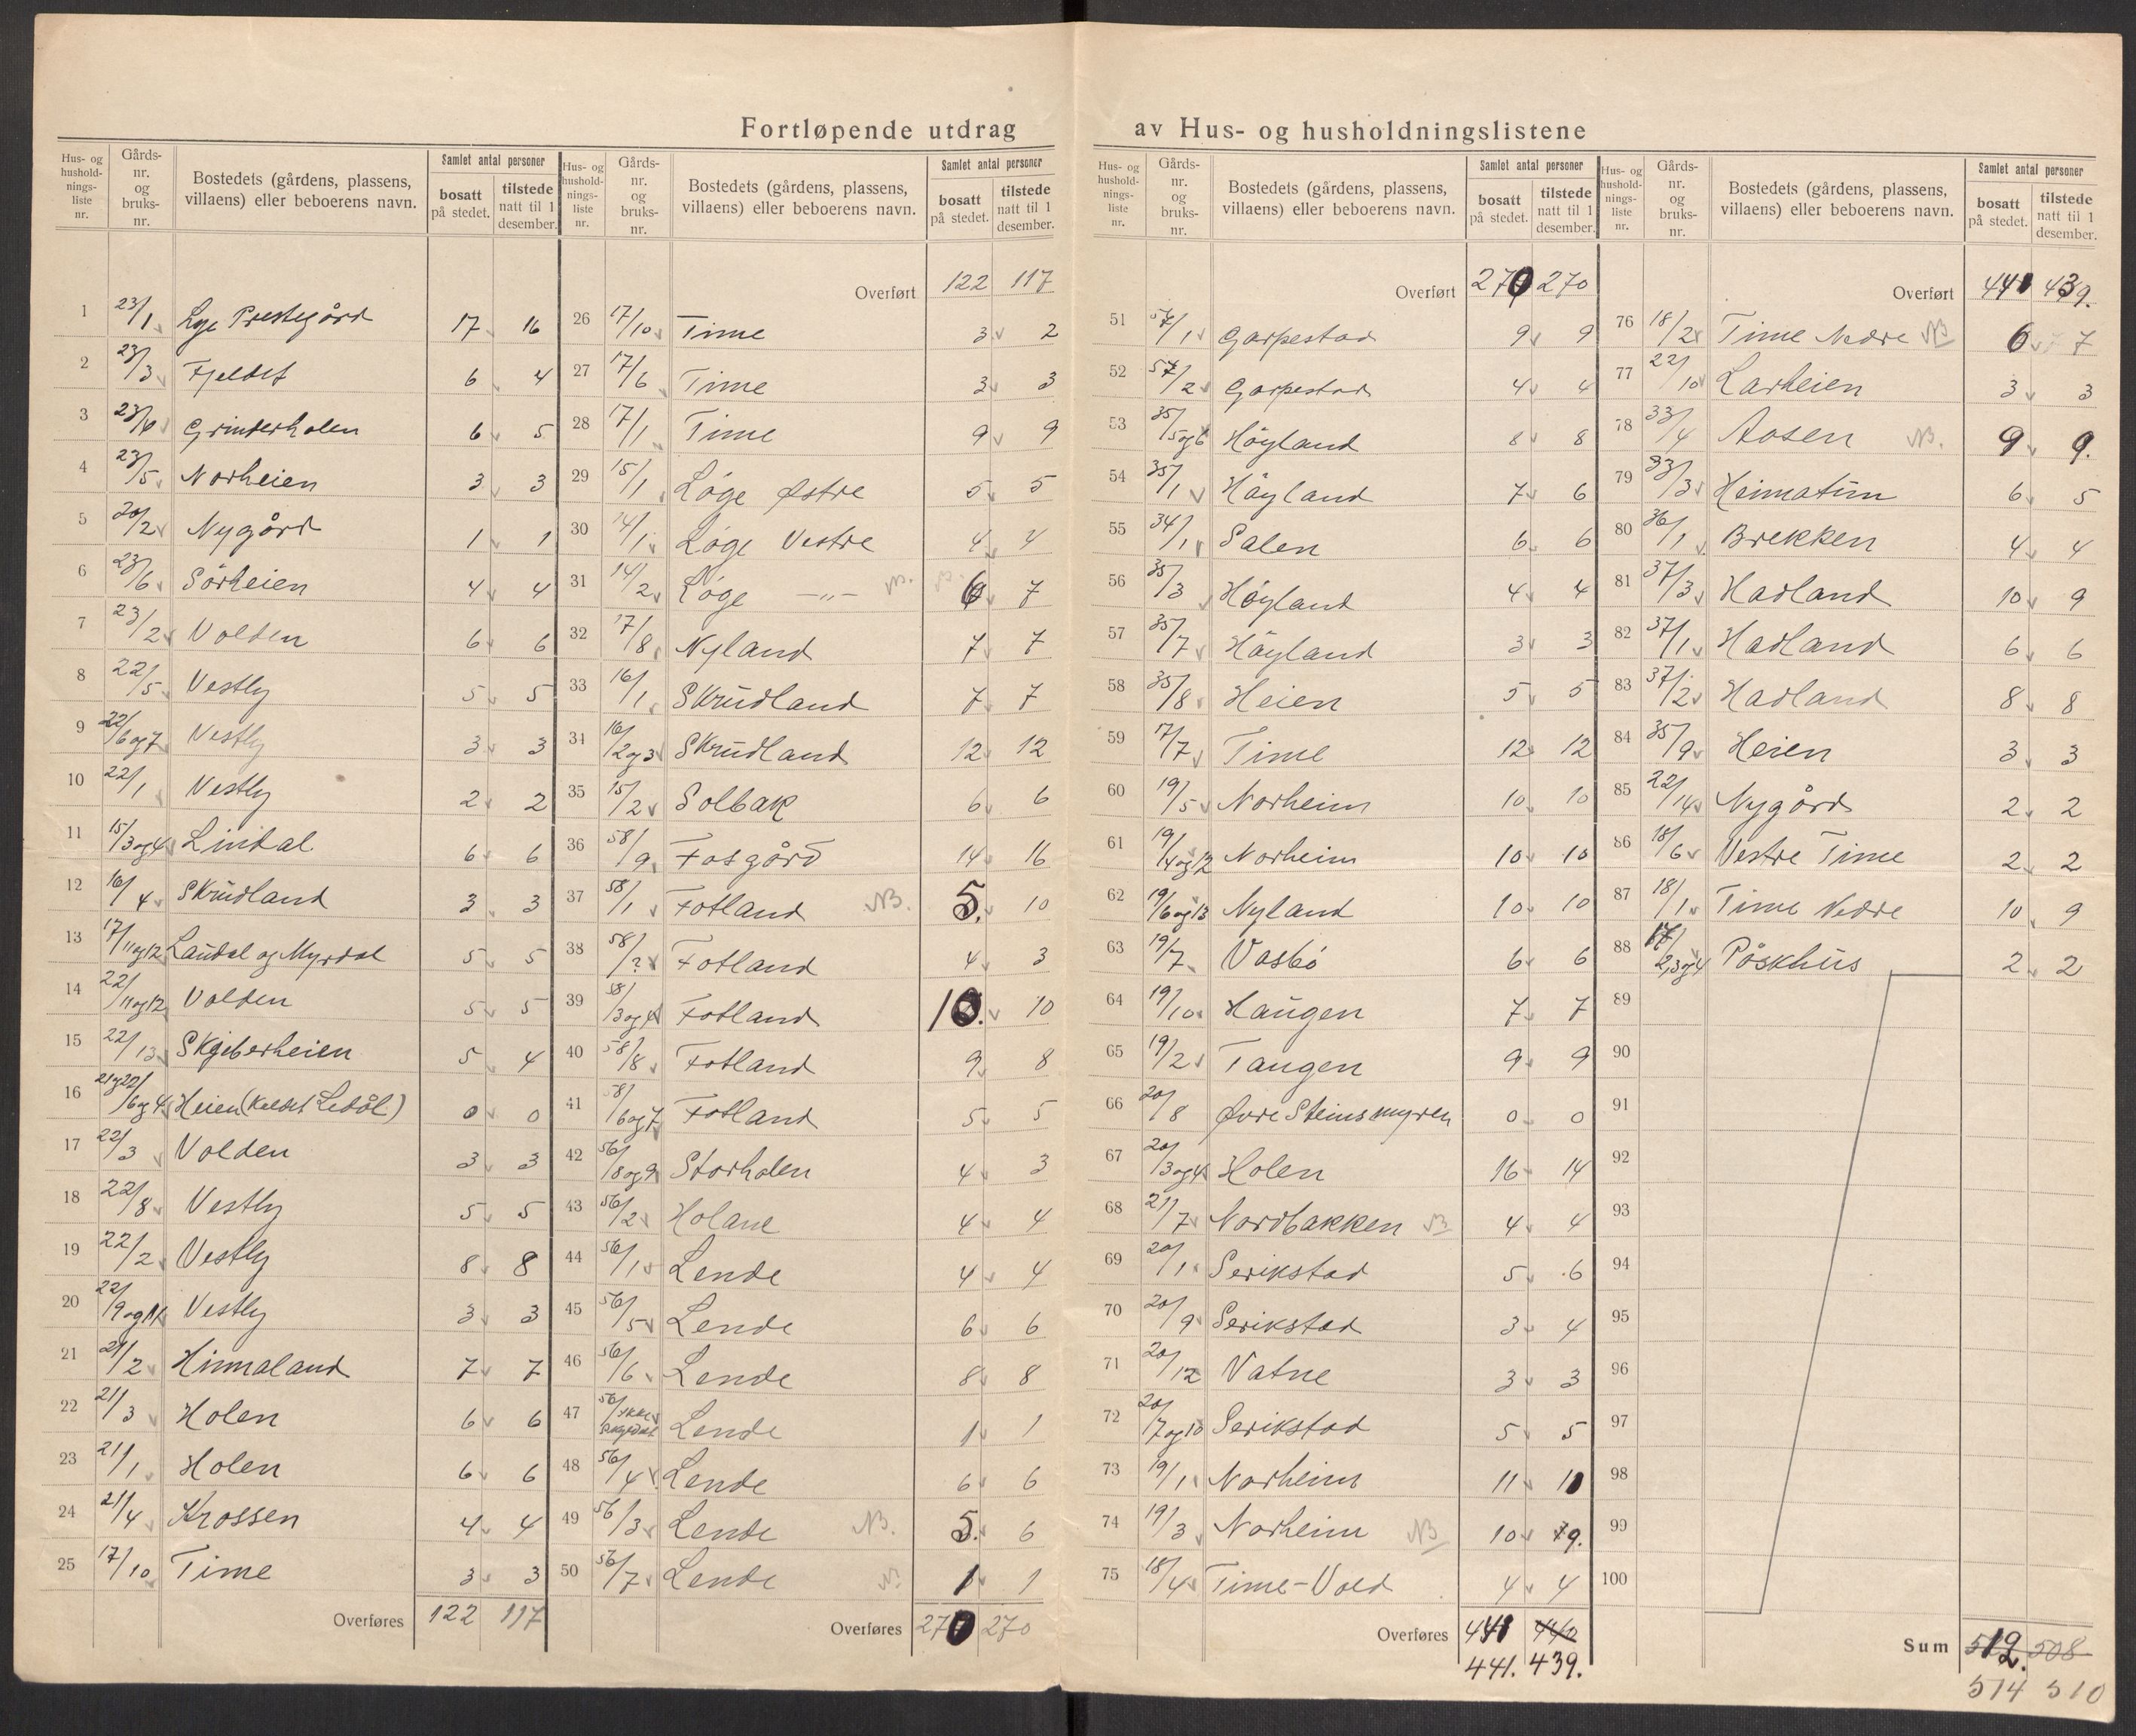 Fortløpende utdrag av Hus- og husholdningslistene
Hus- og husholdningsliste nr. Gårdsnr. og bruksnr. Bostedets (gårdens, plassens, villaens) eller beboerens navn. Samlet antal personer bosatt på stedet. tilstede natt til 1 desember.
1 23/1 Lye Prestegård 17 16
2 23/3 Fjeldet 6 4
3 23/4 Grinderholen 6 5
4 23/5 Norheien 3 3
5 20/2 Nygård 1 1
6 23/6 Sörheien 4 4
7 23/2 Volden 6 6
8 22/5 Vestly 5 5
9 22/6og7 Vestly 3 3
10 22/1 Vestly 2 2
11 15/3og4 Lindal 6 6
12 16/4 Skrudland 3 3
13 17/11og12 Laudal og Myrdal 5 5
14 22/11og12 Volden 5 5
15 22/13 Skjeberheien 5 4
16 21og22/6og4 Heien (Kaldet Ledål) 0 0
17 22/3 Volden 3 3
18 22/8 Vestly 5 5
19 22/2 Vestly 8 8
20 22/9og14 Vestly 3 3
21 21/2 Hinnaland 7 7
22 21/3 Holen 6 6
23 21/1 Holen 6 6
24 21/4 Krossen 4 4
25 17/10 Time 3 3
Overføres 122 117
Hus- og husholdningsliste nr. Gårdsnr. og bruksnr. Bostedets (gårdens, plassens, villaens) eller beboerens navn. Samlet antal personer bosatt på stedet. tilstede natt til 1 desember.
Overført 122 117
26 17/10 Time 3 2
27 17/6 Time 3 3
28 17/1 Time 9 9
29 15/1 Löge Østre 5 5
30 14/1 Löge Vestre 4 4
31 14/2 Löge -"- NB. 6 7
32 17/8 Nyland 7 7
33 16/1 Skrudland 7 7
34 16/2og3 Skrudland 12 12
35 15/2 Solbak 6 6
36 58/9 Fosgård 14 16
37 58/1 Fotland NB. 5. 10
38 58/2 Fotland 4 3
39 58/3og4 Fotland 10. 10
40 58/8 Fotland 9 8
41 58/6og7 Fotland 5 5
42 56/8og9 Storholen 4 3
43 56/2 Holane 4 4
44 56/1 Lende 4 4
45 56/5 Lende 6 6
46 56/6 Lende 8 8
47 56/ikke Lende 1 1
48 56/4 Lende 6 6
49 56/3 Lende NB. 5. 6
50 56/7 Lende NB 1 1
Overføres 270 270
Hus- og husholdningsliste nr. Gårdsnr. og bruksnr. Bostedets (gårdens, plassens, villaens) eller beboerens navn. Samlet antal personer bosatt på stedet. tilstede natt til 1 desember.
Overført 270 270
51 57/1 Garpestad 9 9
52 57/2 Garpestad 4 4
53 35/5og6 Höyland 8 8
54 35/1 Höyland 7 6
55 34/1 Salen 6 6
56 35/3 Höyland 4 4
57 35/7 Höyland 3 3
58 35/8 Heien 5 5
59 17/7 Time 12 12
60 19/5 Norheim 10 10
61 19/14og12 Norheim 10 10
62 19/6og13 Nyland 10 10
63 19/7 Vasbö 6 6
64 19/10 Haugen 7 7
65 19/2 Tangen 9 9
66 20/8 Øvre Steinsmyren 0 0
67 20/3og4 Holen 16 14
68 21/7 Nordbakken NB 4 4
69 20/1 Serikstad 5 6
70 20/9 Serikstad 3 4
71 20/12 Vatne 3 3
72 20/7og10 Serikstad 5 5
73 19/1 Norheim 11 10
74 19/3 Norheim NB 10 9.
75 18/4 Time-Vold 4 4
Overføres 441 442
441. 439.
Hus- og husholdningsliste nr. Gårdsnr. og bruksnr. Bostedets (gårdens, plassens, villaens) eller beboerens navn. Samlet antal personer bosatt på stedet. tilstede natt til 1 desember.
Overført 441 439.
76 18/2 Time Nedre NB 6 7
77 22/10 Larheien 3 3
78 33/4 Aasen NB. 9 9.
79 33/3 Heimatun 6 5
80 36/1 Brekken 4 4
81 37/3 Hadland 10 9
82 37/1 Hadland 6 6
83 37/2 Hadland 8 8
84 35/9 Heien 3 3
85 22/14 Nygård 2 2
86 18/6 Vestre Time 2 2
87 18/1 Time Nedre 10 9
88 17/2,3og4 Påskhus 2 2
89
90
91
92
93
94
95
96
97
98
99
100
Sum 512. 508
514 510